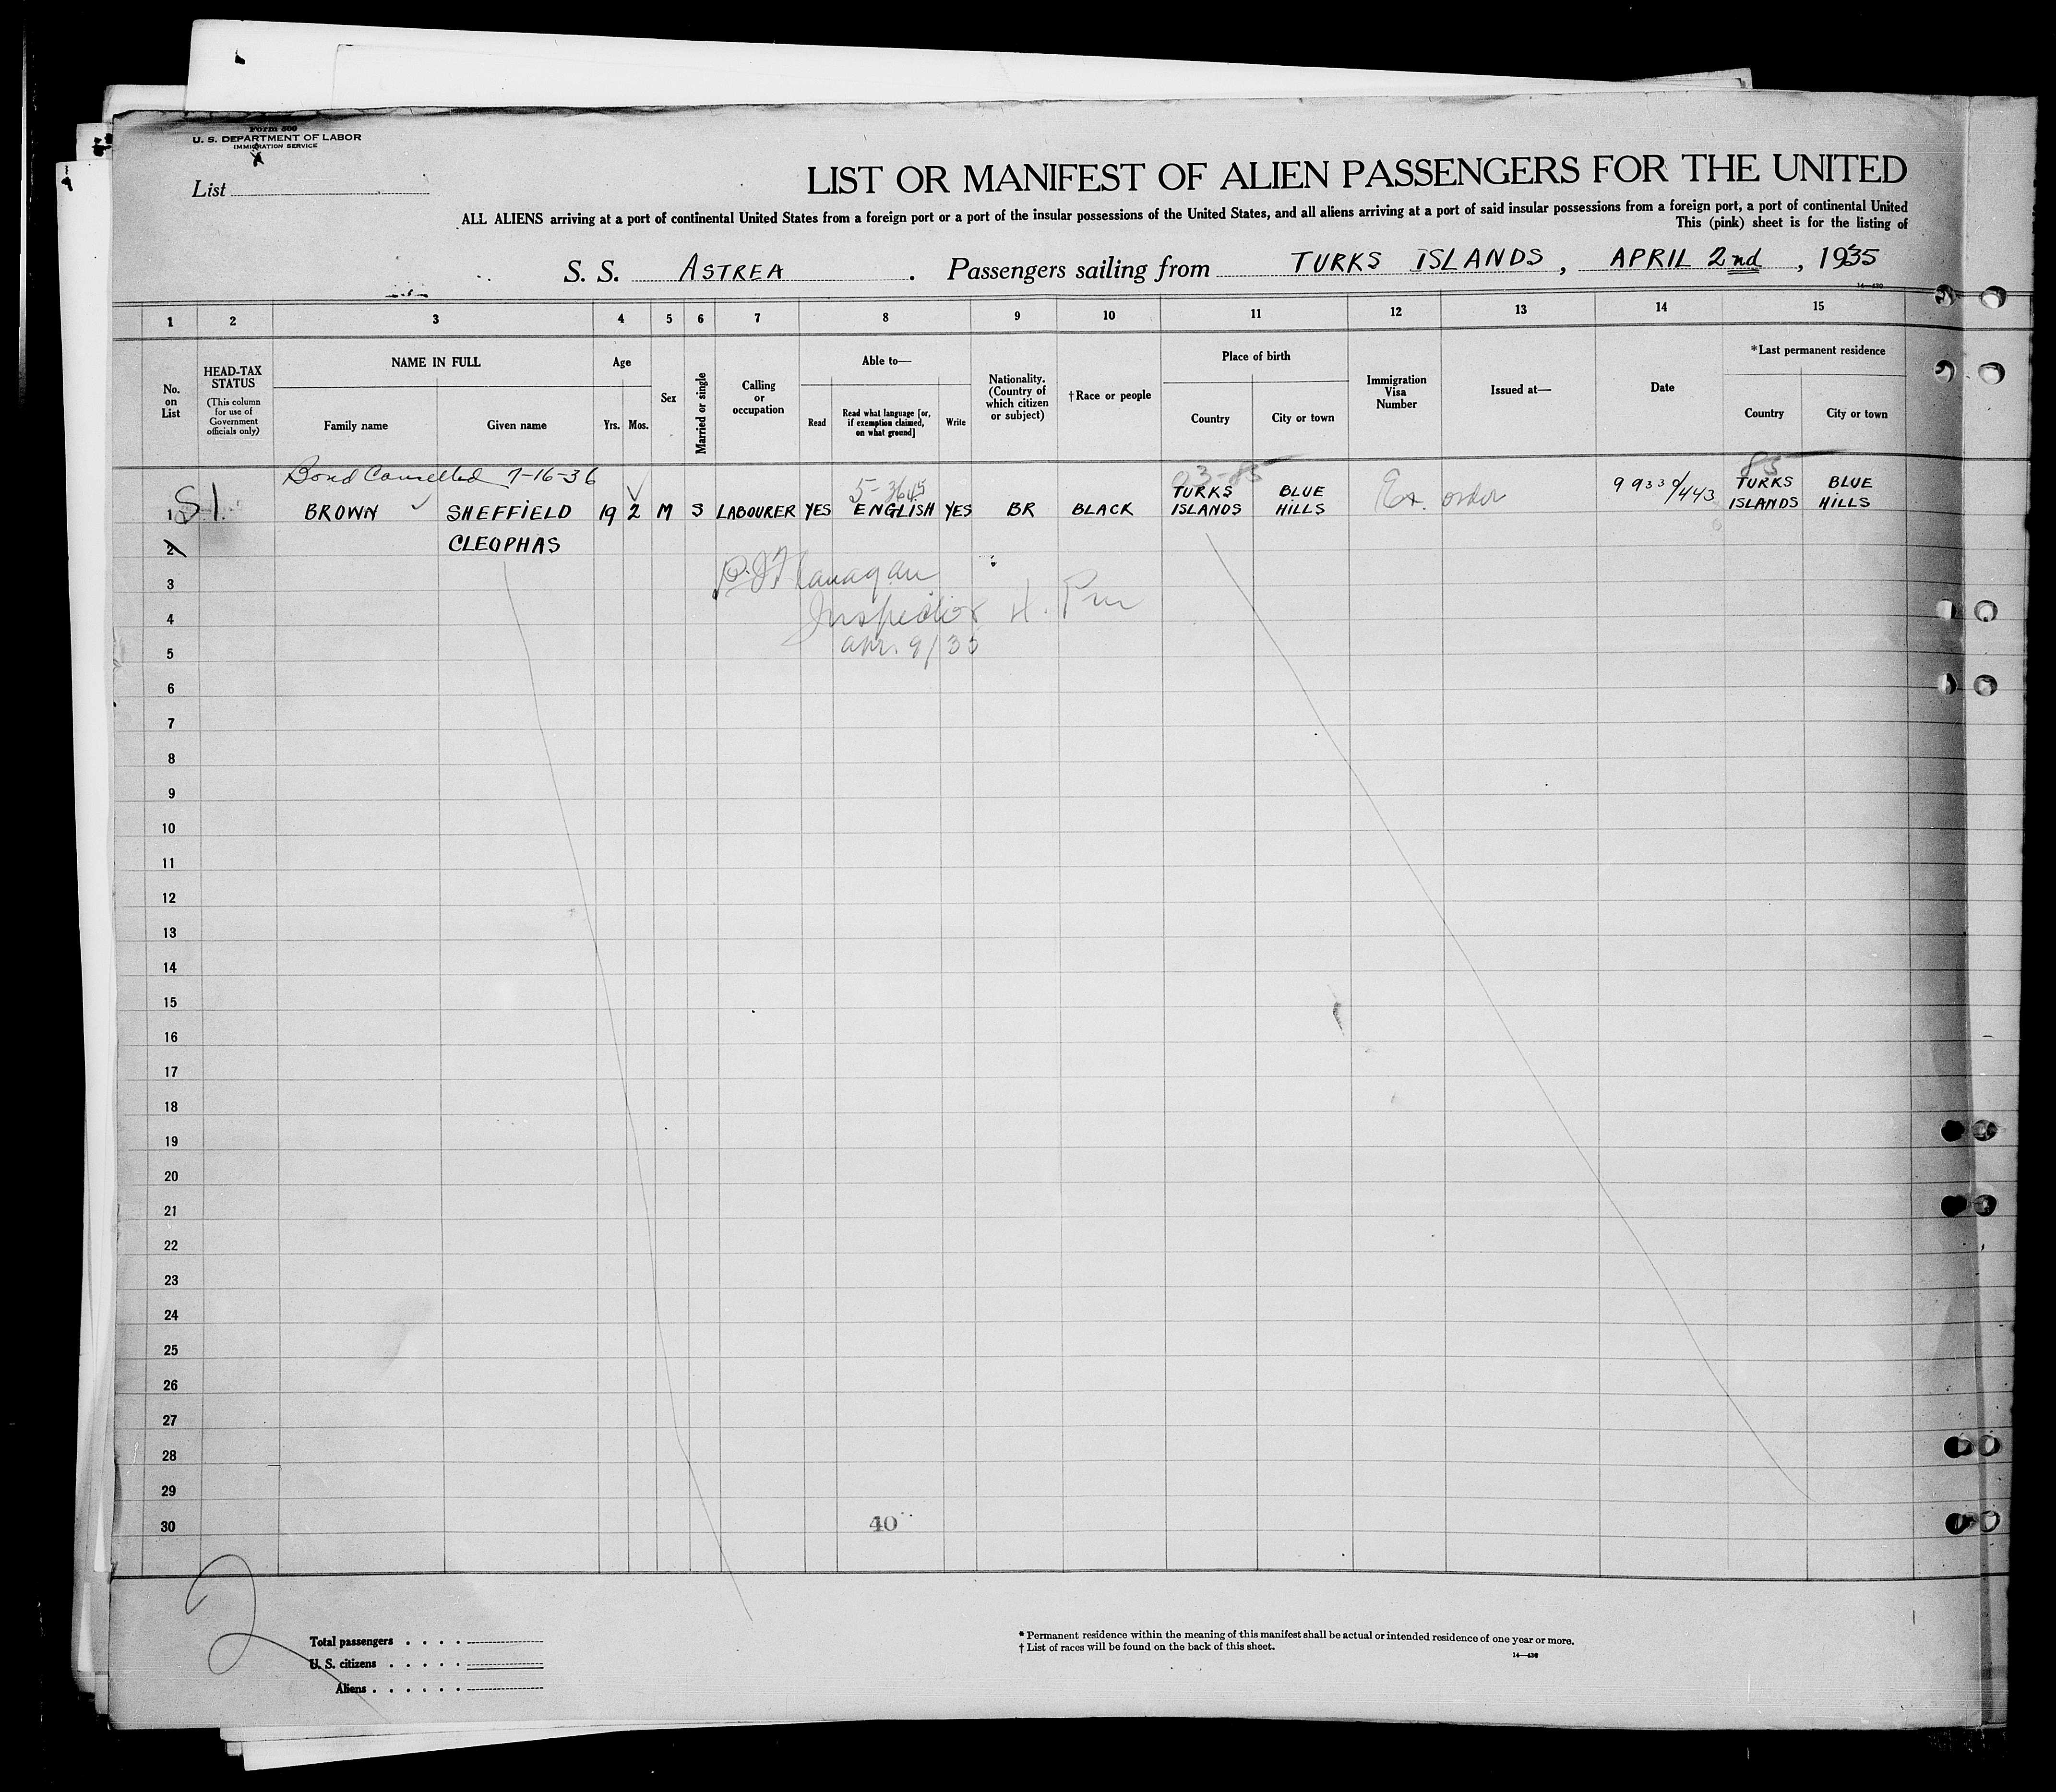 Form 500
U. S. DEPARTMENT OF LABOR
IMMIGRATION SERVICE
List
LIST OR MANIFEST OF ALIEN PASSENGERS FOR THE UNITED
ALL ALIENS arriving at a port of continental United States from a foreign port or a port of the insular possessions of the United States, and all aliens arriving at a port of said insular possessions from a foreign port, a port of continental United
This (pink) sheet is for the listing of
S. S. ASTREA . Passengers sailing from TURKS ISLANDS, APRIL 2nd, 1935
14—430
1 2 3 4 5 6 7 8 9 10 11 12 13 14 15
No. on List
HEAD-TAX STATUS
(This column for use of Government officials only)
NAME IN FULL
Family name
Given name
Age
Yrs. Mos.
Sex
Married or single
Calling or occupation
Able to—
Read
Read what language [or, if exemption claimed, on what ground]
Write
Nationality. (Country of which citizen or subject)
†Race or people
Place of birth
Country
City or town
Immigration Visa Number
Issued at—
Date
*Last permanent residence
Country
City or town
Bond Cancelled 7-16-36
03-85
85
SI.
1 BROWN SHEFFIELD 19 2 M S LABOURER YES ENGLISH YES BR BLACK TURKS ISLANDS BLUE HILLS Ex. order 99330/443 TURKS ISLANDS BLUE HILLS
2 CLEOPHAS
3
P. J. Flanagan
4
Inspector
5
Apr. 9/35
6
7
8
9
10
11
12
13
14
15
16
17
18
19
20
21
22
23
24
25
26
27
28
29
30
40
2
Total passengers
U. S. citizens
Aliens
* Permanent residence within the meaning of this manifest shall be actual or intended residence of one year or more.
† List of races will be found on the back of this sheet.
14—430